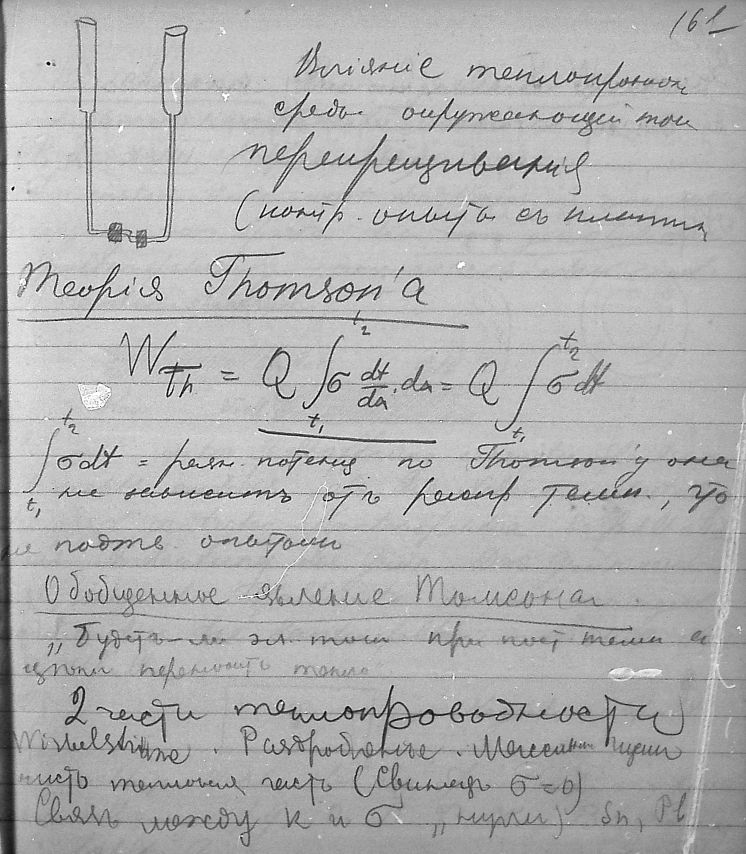 161
Вліяніе теплопровод
среды окружающей точ
перекрещиванія
(контр. опыты съ
Теорія Thomson'a
W_Th = Q ∫_{t₁}^{t₂} σ dt/da · da = Q ∫_{t₁}^{t₂} σ dt
∫_{t₁}^{t₂} σdt = разн. потенц по Thomson'у она
не зависитъ отъ распр темп., что
не подтв. опытами
Обобщенное явление Томсона.
„Будетъ-ли эл. токъ при пост темп
переносить тепло
2 части теплопроводности
чисто тепловая часть (Свинецъ σ=0)
Связь между k и σ Sn, Pb